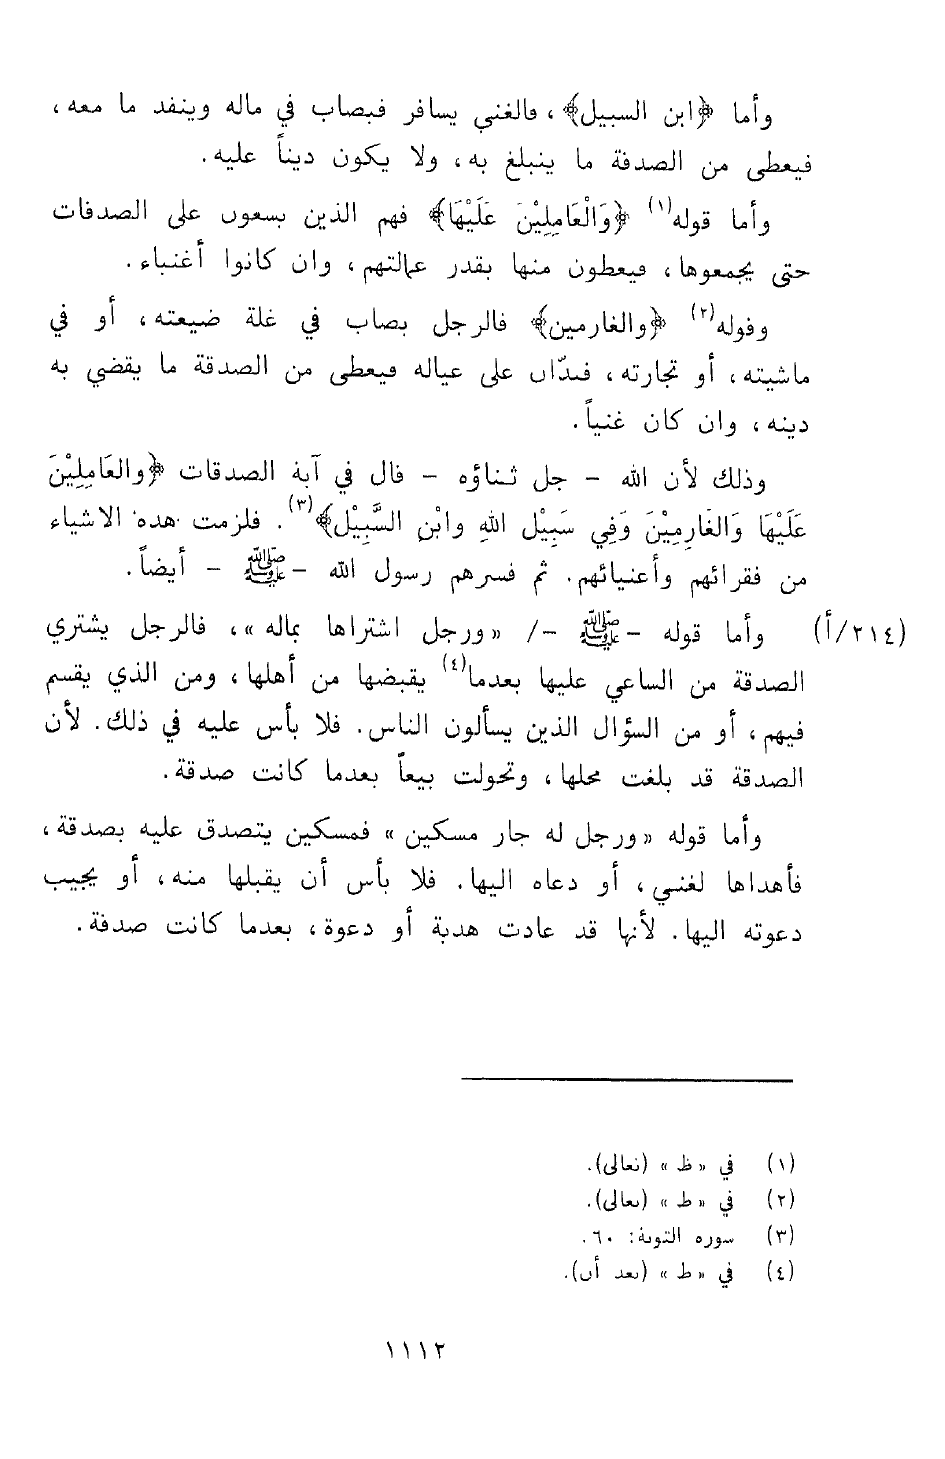 وأما ﴿ابن السبيل﴾، فالغني يسافر فيصاب في ماله وينفد ما معه،
فيعطى من الصدقة ما ينبلغ به، ولا يكون ديناً عليه.
وأما قوله(١) ﴿وَالْعَامِلِيْنَ عَلَيْهَا﴾ فهم الذين يسعون على الصدقات
حتى يجمعوها، فيعطون منها بقدر عمالتهم، وان كانوا أغنياء.
وقوله(٢) ﴿والغارمين﴾ فالرجل يصاب في غلة ضيعته، أو في
ماشيته، أو تجارته، فيدّان على عياله فيعطى من الصدقة ما يقضي به
دينه، وان كان غنياً.
وذلك لأن الله - جل ثناؤه - قال في آية الصدقات ﴿والعَامِلِيْنَ
عَلَيْهَا وَالغَارِمِيْنَ وَفِي سَبِيْلِ اللهِ وابْنِ السَّبِيْلِ﴾(٣). فلزمت هذه الاشياء
من فقرائهم وأغنيائهم. ثم فسرهم رسول الله - ﷺ - أيضاً.
(٢١٤/أ) وأما قوله - ﷺ -/ «ورجل اشتراها بماله»، فالرجل يشتري
الصدقة من الساعي عليها بعدما(٤) يقبضها من أهلها، ومن الذي يقسم
فيهم، أو من السؤال الذين يسألون الناس. فلا بأس عليه في ذلك. لأن
الصدقة قد بلغت محلها، وتحولت بيعاً بعدما كانت صدقة.
وأما قوله «ورجل له جار مسكين» فمسكين يتصدق عليه بصدقة،
فأهداها لغني، أو دعاه اليها. فلا بأس أن يقبلها منه، أو يجيب
دعوته اليها. لأنها قد عادت هدية أو دعوة، بعدما كانت صدقة.
(١) في «ظ» (تعالى).
(٢) في «ظ» (تعالى).
(٣) سورة التوبة: ٦٠.
(٤) في «ظ» (بعد أن).
١١١٢